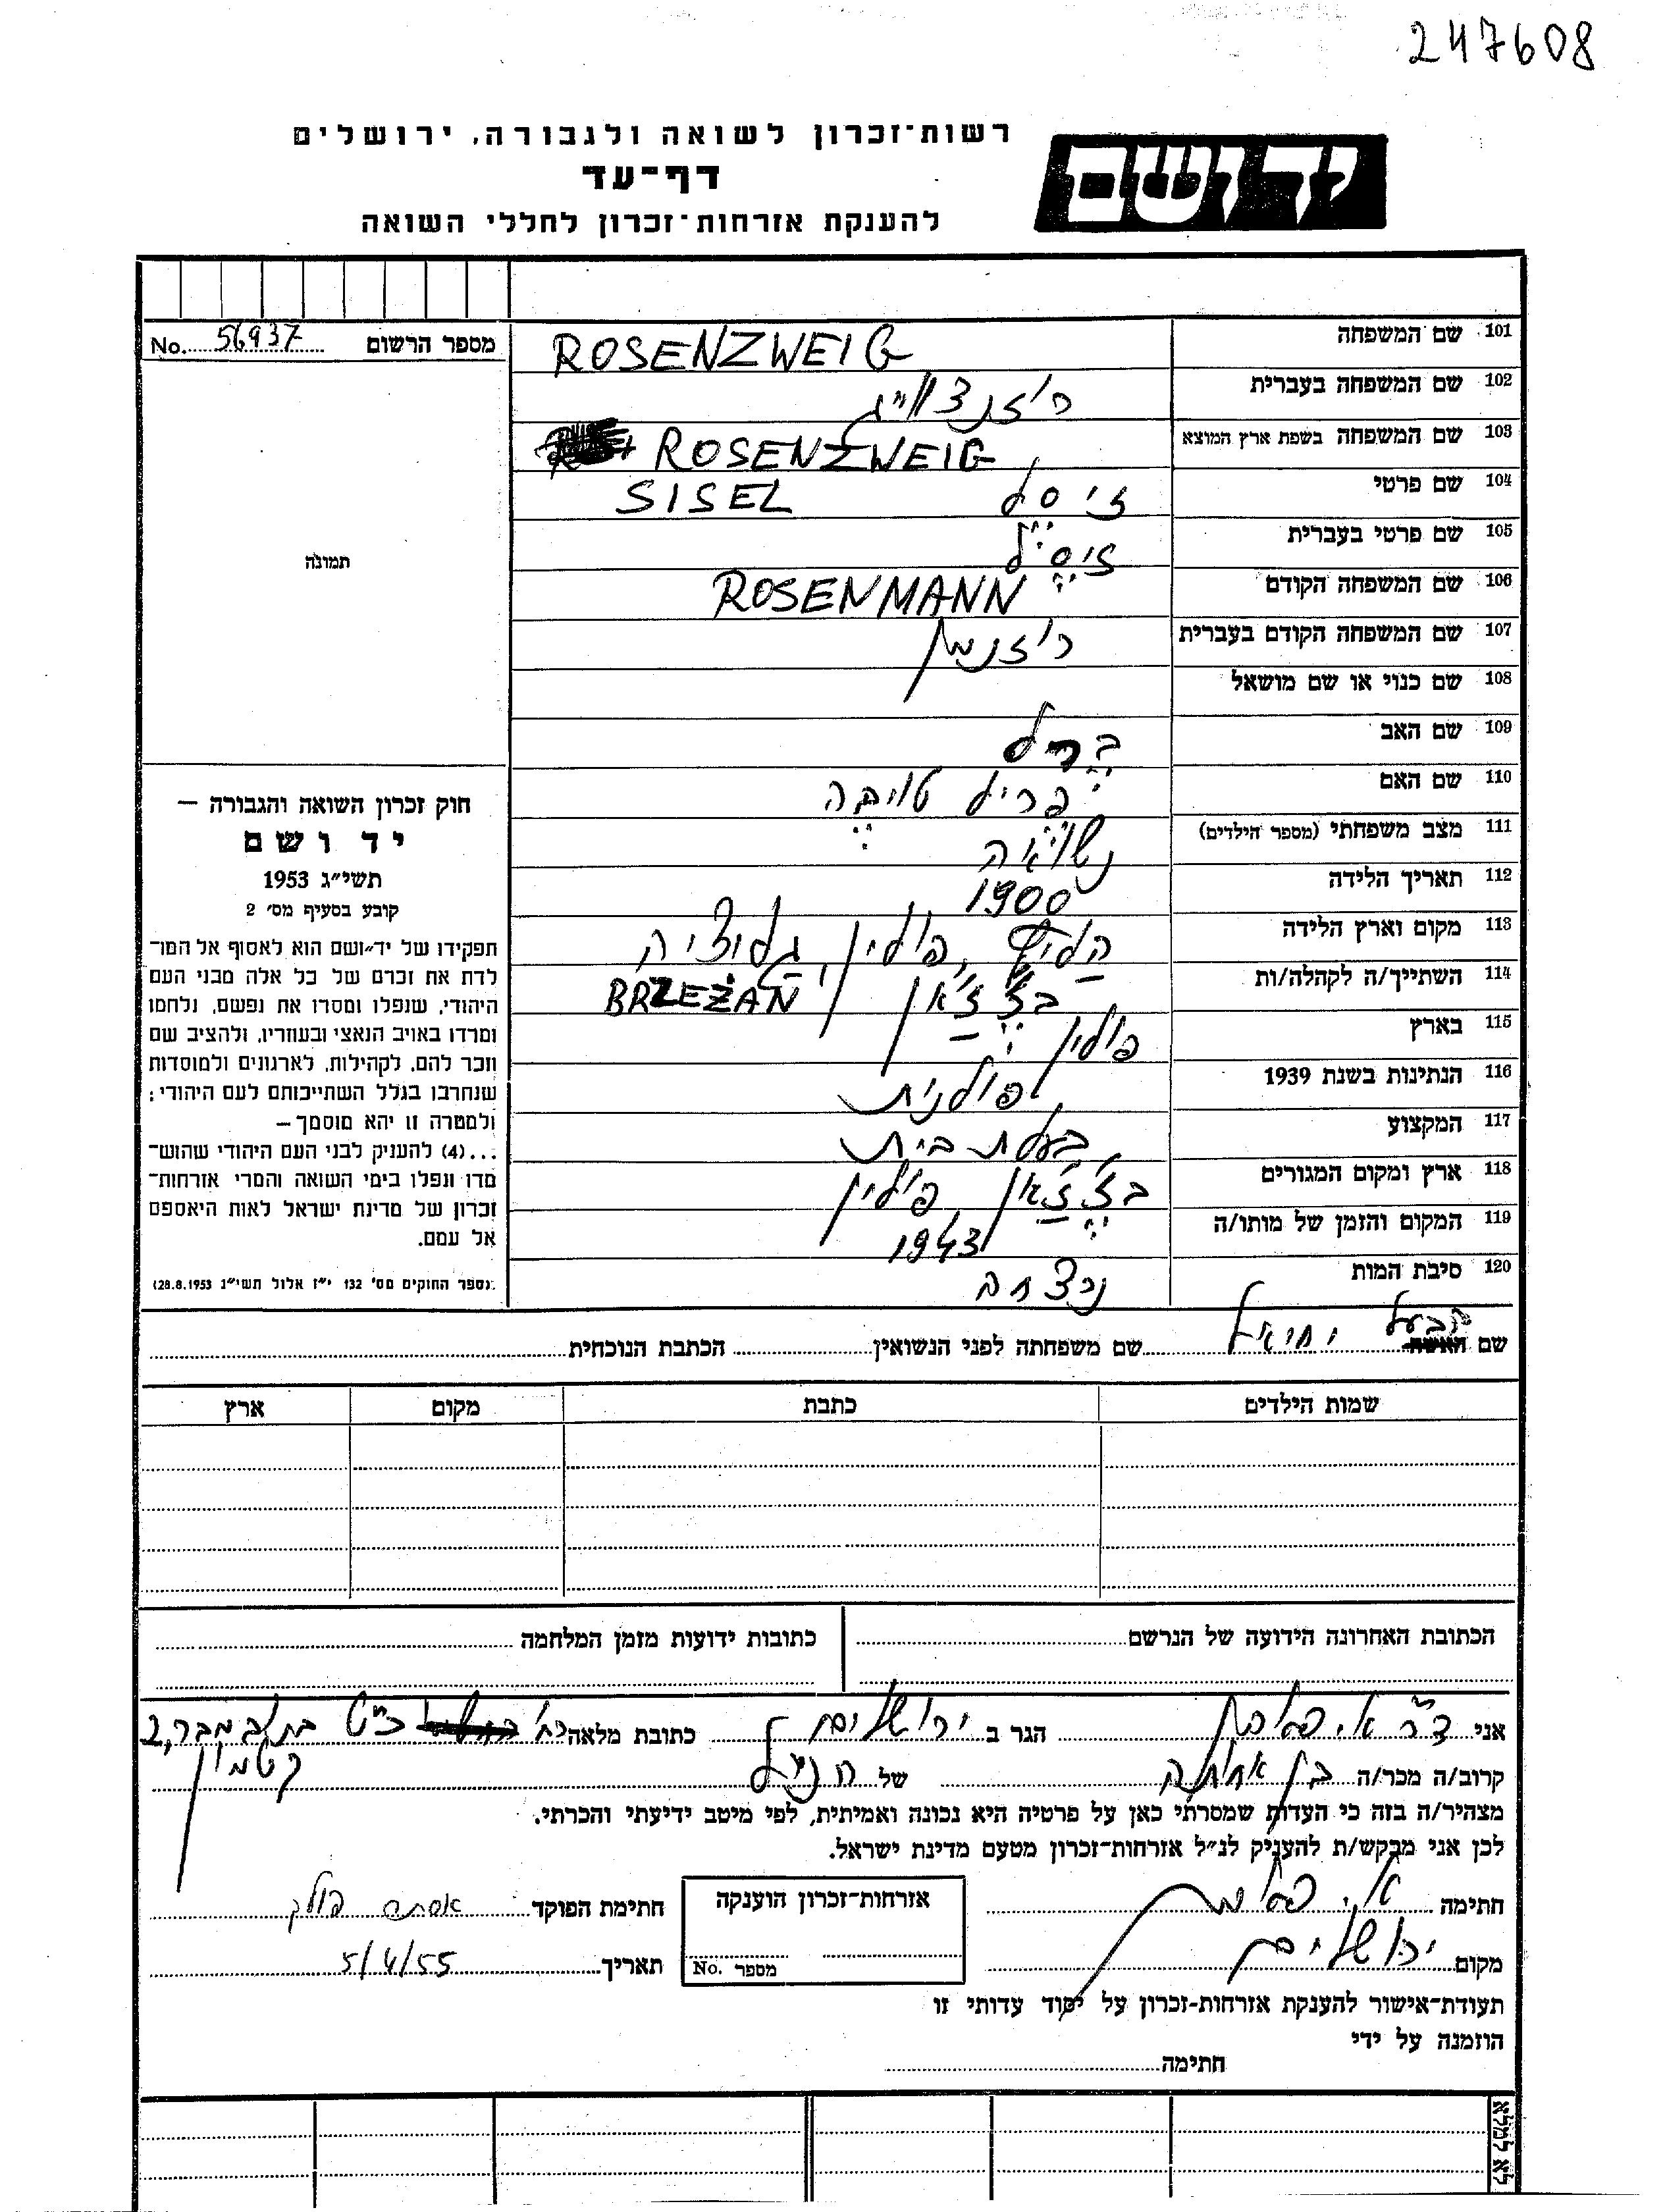 247608
יד ושם
רשות־זכרון לשואה ולגבורה, ירושלים
דף־עד
להענקת אזרחות־זכרון לחללי השואה
מספר הרשום No. 56937
תמונה
101 שם המשפחה ROSENZWEIG
102 שם המשפחה בעברית רוזנצווייג
103 שם המשפחה בשפת ארץ המוצא ROSENZWEIG
104 שם פרטי זיסל SISEL
105 שם פרטי בעברית זיסל
106 שם המשפחה הקודם ROSENMANN
107 שם המשפחה הקודם בעברית רוזנמן
108 שם כנוי או שם מושאל
109 שם האב ברל
110 שם האם פריל טויבה
111 מצב משפחתי (מספר הילדים) נשואה
112 תאריך הלידה 1900
113 מקום וארץ הלידה פולין, גליציה
114 השתייך/ה לקהלה/ות בז'ז'אן BRZEŻAN
115 בארץ פולין
116 הנתינות בשנת 1939 פולנית
117 המקצוע בעלת בית
118 ארץ ומקום המגורים בז'ז'אן פולין
119 המקום והזמן של מותו/ה 1943
120 סיבת המות נרצחה
חוק זכרון השואה והגבורה —
יד ושם
תשי״ג 1953
קובע בסעיף מס׳ 2
תפקידו של יד־ושם הוא לאסוף אל המו־
לדת את זכרם של כל אלה מבני העם
היהודי, שנפלו ומסרו את נפשם, נלחמו
ומרדו באויב הנאצי ובעוזריו, ולהציב שם
וזכר להם, לקהילות, לארגונים ולמוסדות
שנחרבו בגלל השתייכותם לעם היהודי;
ולמטרה זו יהא מוסמך —
...(4) להעניק לבני העם היהודי שהוש־
מדו ונפלו בימי השואה והמרי אזרחות־
זכרון של מדינת ישראל לאות היאספם
אל עמם.
(ספר החוקים מס׳ 132 י״ז אלול תשי״ג 28.8.1953)
שם האשה הבעל יחיאל שם משפחתה לפני הנשואין הכתבת הנוכחית
שמות הילדים כתבת מקום ארץ
הכתובת האחרונה הידועה של הנרשם כתובות ידועות מזמן המלחמה
אני ד״ר א. הגר ב ירושלים כתובת מלאה
קטמון
קרוב/ה מכר/ה בן אחותה של הנ״ל
מצהיר/ה בזה כי העדות שמסרתי כאן על פרטיה היא נכונה ואמיתית, לפי מיטב ידיעתי והכרתי.
לכן אני מבקש/ת להעניק לנ״ל אזרחות־זכרון מטעם מדינת ישראל.
חתימה אזרחות־זכרון הוענקה חתימת הפוקד אסתר פולק
מקום ירושלים מספר No. תאריך 5/4/55
תעודת־אישור להענקת אזרחות־זכרון על יסוד עדותי זו
הוזמנה על ידי
חתימה
לא למלא